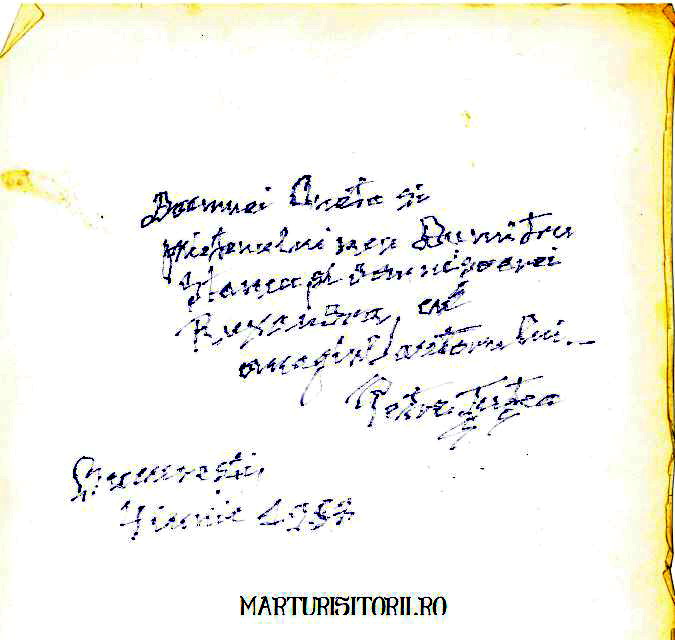 Doamnei Aneta și
prietenului meu Dumitru
Stanca și domnișoarei
Ruxandra, cu
omagiul autorului. –
Petre Țuțea
București,
iunie
MARTURISITORII.RO